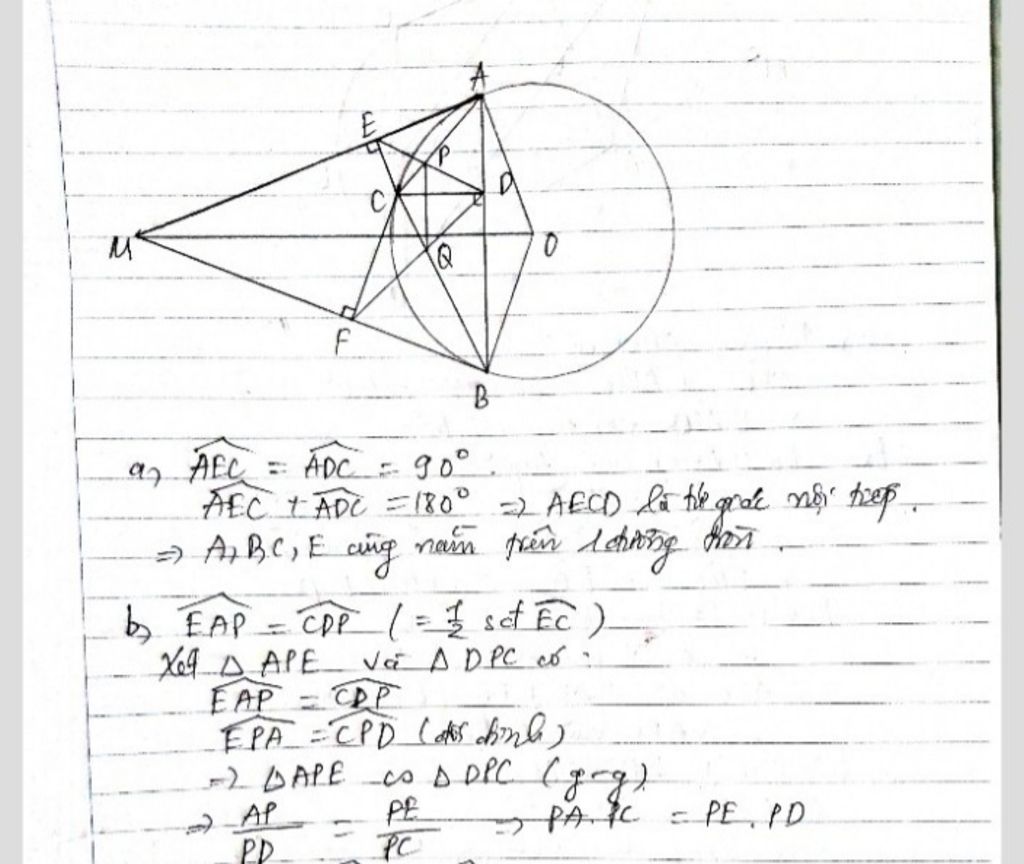 A
E
P
C
D
M
O
Q
F
B
a, AEC = ADC = 90°.
AEC + ADC = 180° => AECD là tứ giác nội tiếp.
=> A, B, C, E cùng nằm trên 1 đường tròn.
b, EAP = CDP ( = 1/2 sđ EC )
Xét Δ APE và Δ DPC có :
EAP = CDP
EPA = CPD (đối đỉnh)
=> Δ APE ∽ Δ DPC (g-g)
=> AP/PD = PE/PC => PA. PC = PE. PD